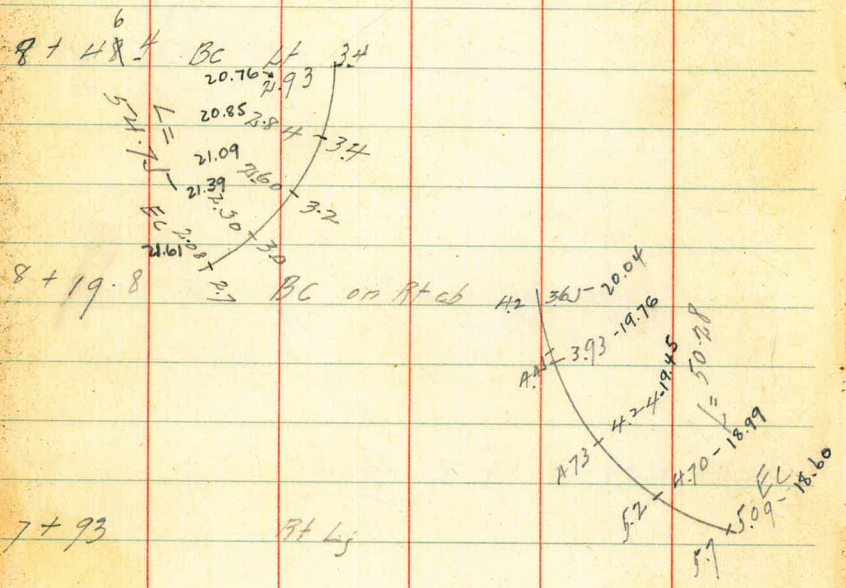 6
8 + 48.4 BC Lt 3.4
20.76 - 2.93
20.85 2.84 - 3.4
L = 54.75
21.09 2.60 - 3.2
21.39 2.30 - 3.0
EC 21.61 2.08 - 2.7
8 + 19.8 BC on Rt cb
4.2 3.65 - 20.04
3.93 - 19.76
4.24 - 19.45
L = 50.28
4.73 4.70 - 18.99
EC
5.2
5.7 5.09 - 18.60
7 + 93 Rt